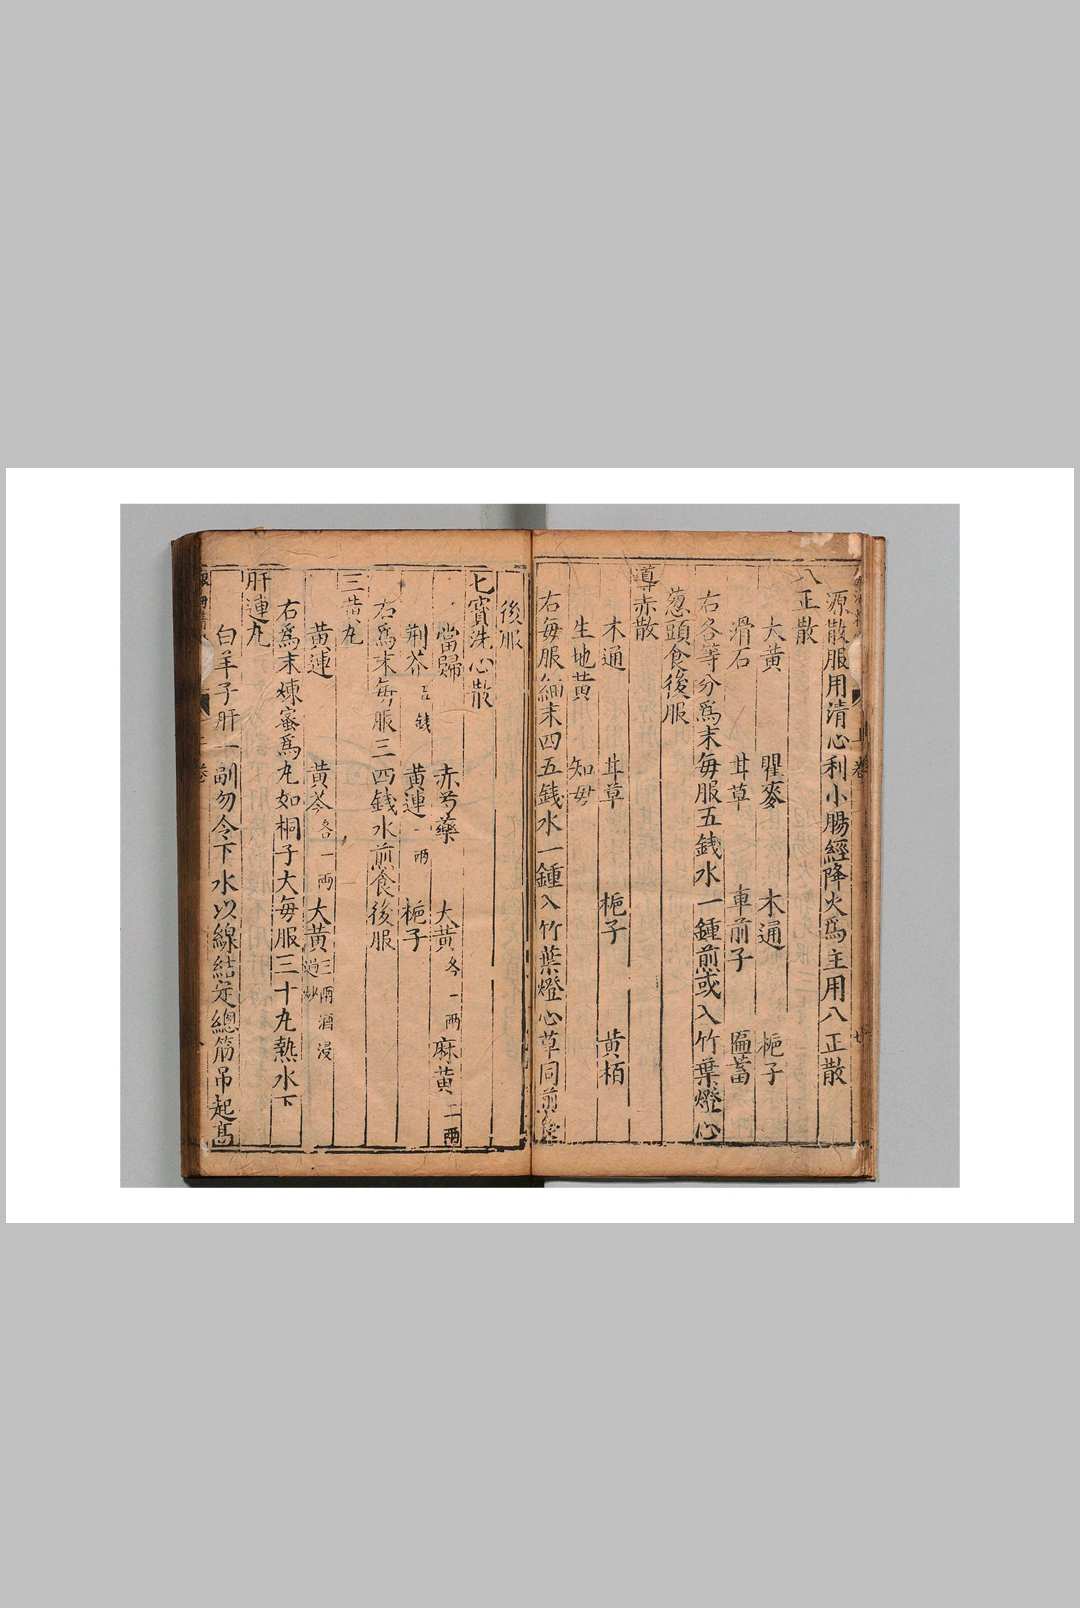 源散服用清心利小腸經降火為主用八正散
八正散
大黃 瞿麥 木通 梔子
滑石 甘草 車前子 匾蓄
右各等分為末每服五錢水一鍾煎或入竹葉燈心
葱頭食後服
導赤散
木通 甘草 梔子 黃栢
生地黃 知母
右每服細末四五錢水一鍾入竹葉燈心草同煎
後服
七寳洗心散
當歸 赤芍藥 大黃各一兩 麻黃二兩
荆芥五錢 黃連一兩 梔子
右為末每服三四錢水煎食後服
三黃丸
黃連 黃芩各一兩 大黃三兩酒浸過炒
右為末煉蜜為丸如桐子大每服三十丸熱水下
肝連丸
白羊子肝一副勿令下水以線結定總筋吊起高